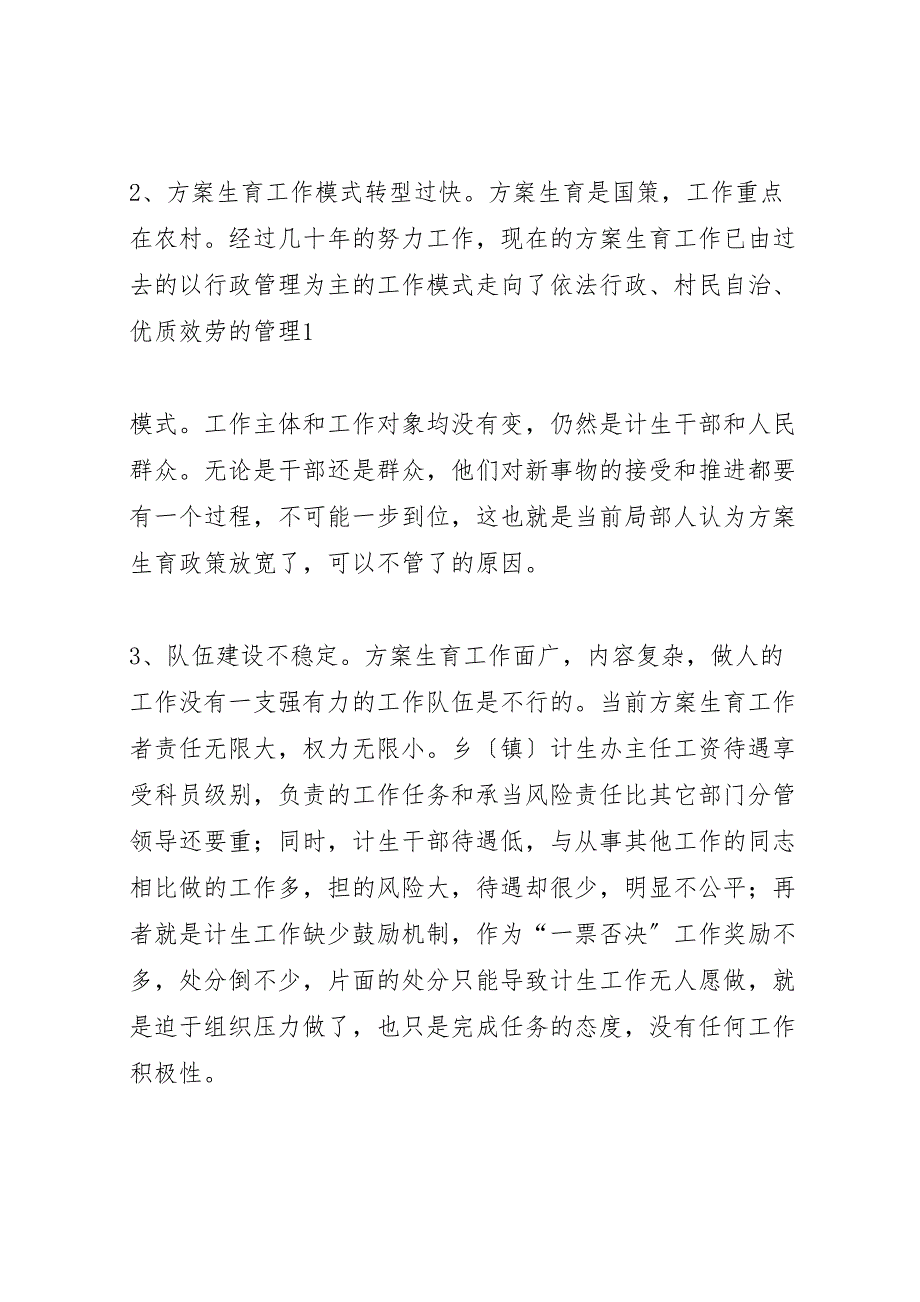 2、方案生育工作模式转型过快。方案生育是国策，工作重点
在农村。经过几十年的努力工作，现在的方案生育工作已由过
去的以行政管理为主的工作模式走向了依法行政、村民自治、
优质效劳的管理1
模式。工作主体和工作对象均没有变，仍然是计生干部和人民
群众。无论是干部还是群众，他们对新事物的接受和推进都要
有一个过程，不可能一步到位，这也就是当前局部人认为方案
生育政策放宽了，可以不管了的原因。
3、队伍建设不稳定。方案生育工作面广，内容复杂，做人的
工作没有一支强有力的工作队伍是不行的。当前方案生育工作
者责任无限大，权力无限小。乡〔镇〕计生办主任工资待遇享
受科员级别，负责的工作任务和承当风险责任比其它部门分管
领导还要重；同时，计生干部待遇低，与从事其他工作的同志
相比做的工作多，担的风险大，待遇却很少，明显不公平；再
者就是计生工作缺少鼓励机制，作为“一票否决〞工作奖励不
多，处分倒不少，片面的处分只能导致计生工作无人愿做，就
是迫于组织压力做了，也只是完成任务的态度，没有任何工作
积极性。